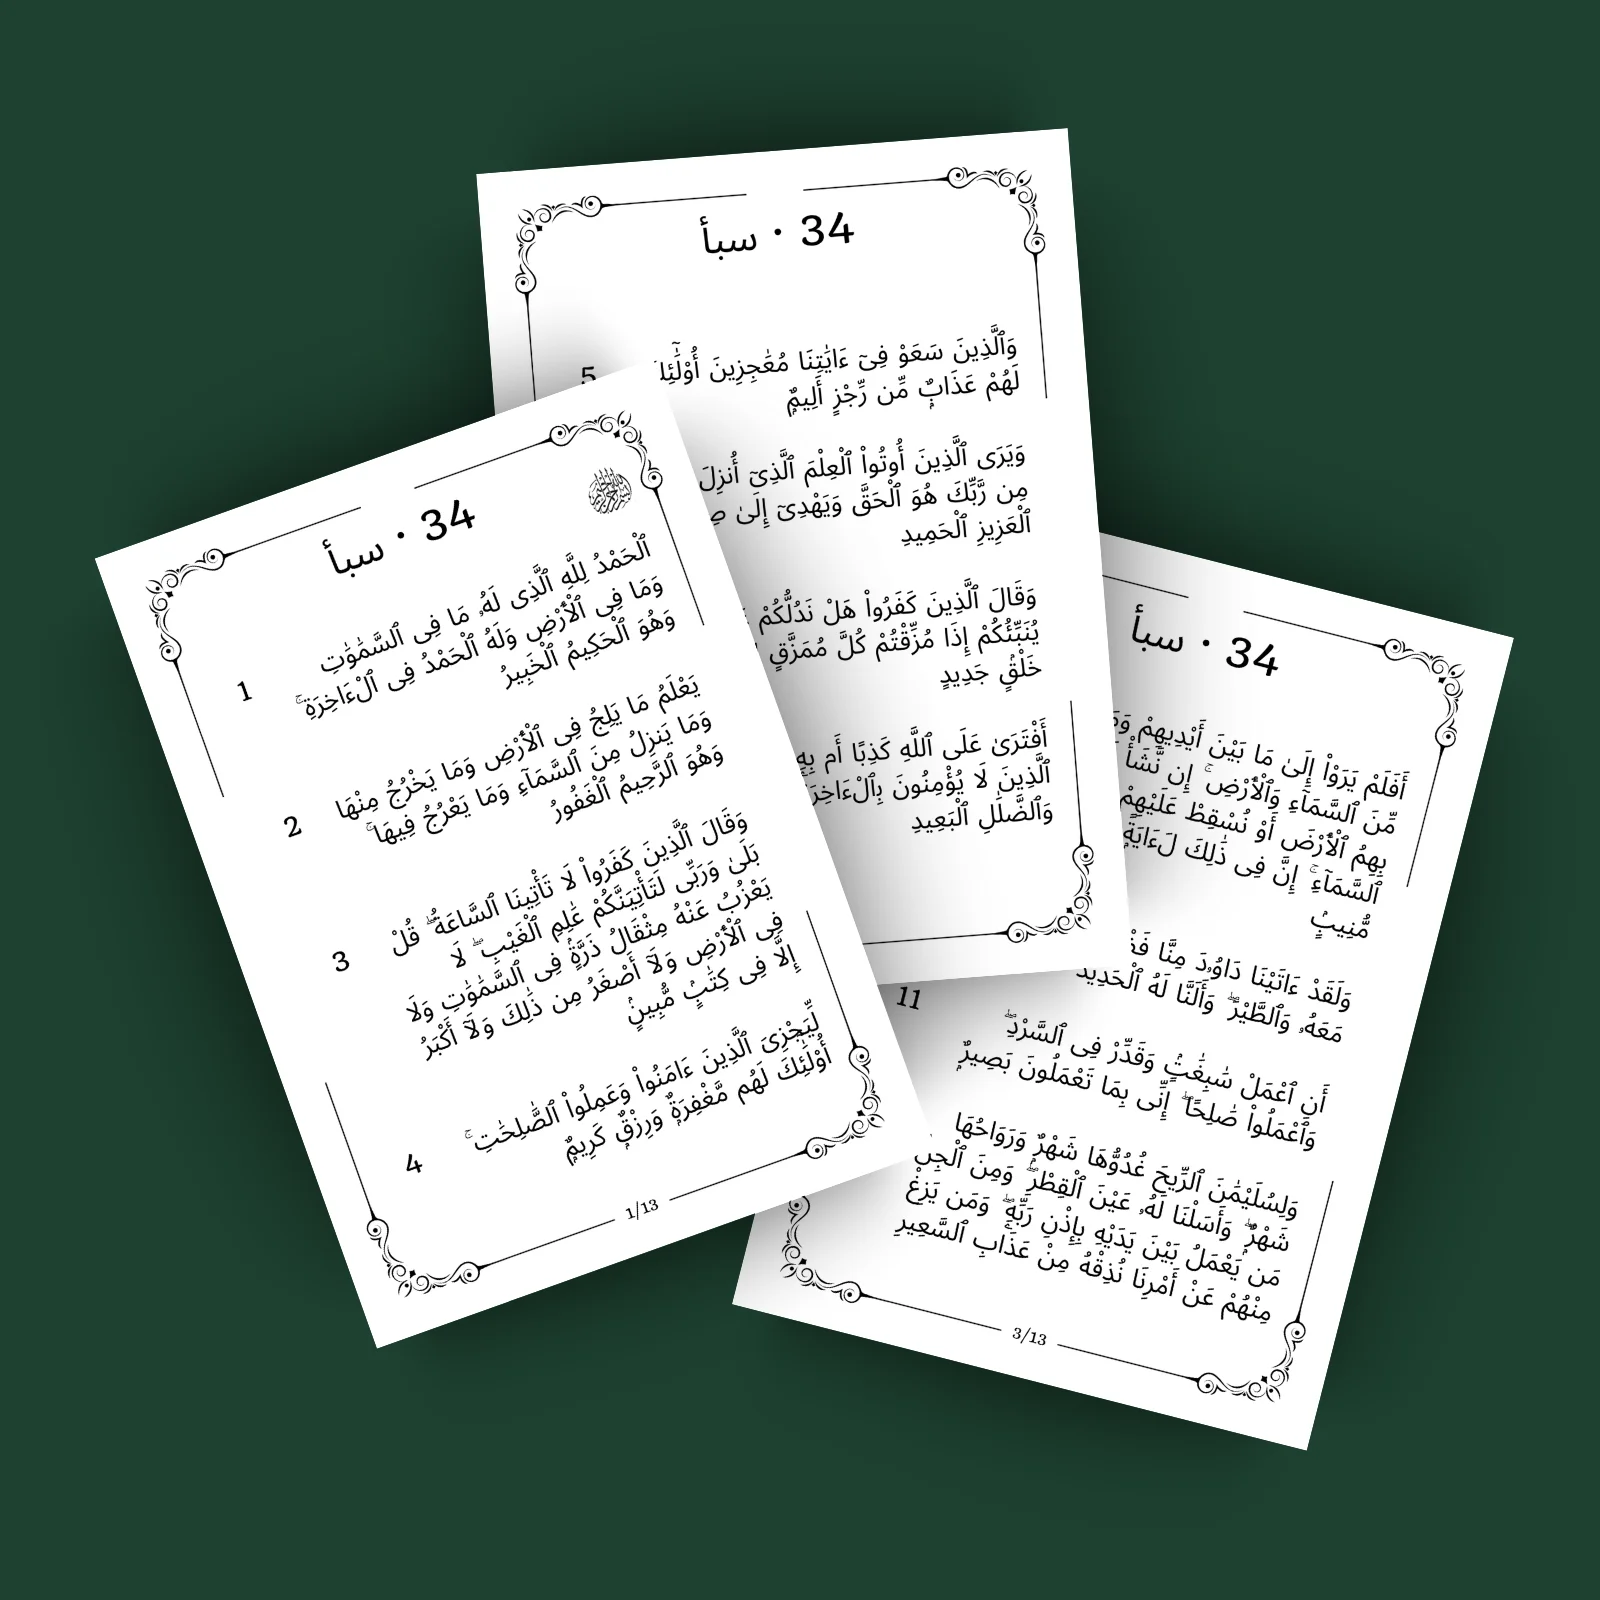 34 · سبأ
ٱلْحَمْدُ لِلَّهِ ٱلَّذِى لَهُۥ مَا فِى ٱلسَّمَٰوَٰتِ
وَمَا فِى ٱلْأَرْضِ وَلَهُ ٱلْحَمْدُ فِى ٱلْءَاخِرَةِ ۚ
وَهُوَ ٱلْحَكِيمُ ٱلْخَبِيرُ
1
يَعْلَمُ مَا يَلِجُ فِى ٱلْأَرْضِ وَمَا يَخْرُجُ مِنْهَا
وَمَا يَنزِلُ مِنَ ٱلسَّمَآءِ وَمَا يَعْرُجُ فِيهَا ۚ
وَهُوَ ٱلرَّحِيمُ ٱلْغَفُورُ
2
وَقَالَ ٱلَّذِينَ كَفَرُوا۟ لَا تَأْتِينَا ٱلسَّاعَةُ ۖ قُلْ
بَلَىٰ وَرَبِّى لَتَأْتِيَنَّكُمْ عَٰلِمِ ٱلْغَيْبِ ۖ لَا
يَعْزُبُ عَنْهُ مِثْقَالُ ذَرَّةٍۢ فِى ٱلسَّمَٰوَٰتِ وَلَا
فِى ٱلْأَرْضِ وَلَآ أَصْغَرُ مِن ذَٰلِكَ وَلَآ أَكْبَرُ
إِلَّا فِى كِتَٰبٍۢ مُّبِينٍۢ
3
لِّيَجْزِىَ ٱلَّذِينَ ءَامَنُوا۟ وَعَمِلُوا۟ ٱلصَّٰلِحَٰتِ ۚ
أُو۟لَٰٓئِكَ لَهُم مَّغْفِرَةٌۭ وَرِزْقٌۭ كَرِيمٌۭ
4
1/13
34 · سبأ
وَٱلَّذِينَ سَعَوْ فِىٓ ءَايَٰتِنَا مُعَٰجِزِينَ أُو۟لَٰٓئِكَ
لَهُمْ عَذَابٌۭ مِّن رِّجْزٍ أَلِيمٌۭ
5
وَيَرَى ٱلَّذِينَ أُوتُوا۟ ٱلْعِلْمَ ٱلَّذِىٓ أُنزِلَ
مِن رَّبِّكَ هُوَ ٱلْحَقَّ وَيَهْدِىٓ إِلَىٰ
ٱلْعَزِيزِ ٱلْحَمِيدِ
وَقَالَ ٱلَّذِينَ كَفَرُوا۟ هَلْ نَدُلُّكُمْ
يُنَبِّئُكُمْ إِذَا مُزِّقْتُمْ كُلَّ مُمَزَّقٍ
خَلْقٍۢ جَدِيدٍ
أَفْتَرَىٰ عَلَى ٱللَّهِ كَذِبًا أَم بِهِۦ
ٱلَّذِينَ لَا يُؤْمِنُونَ بِٱلْءَاخِرَةِ
وَٱلضَّلَٰلِ ٱلْبَعِيدِ
34 · سبأ
أَفَلَمْ يَرَوْا۟ إِلَىٰ مَا بَيْنَ أَيْدِيهِمْ
مِّنَ ٱلسَّمَآءِ وَٱلْأَرْضِ ۚ إِن نَّشَأْ
بِهِمُ ٱلْأَرْضَ أَوْ نُسْقِطْ عَلَيْهِمْ
ٱلسَّمَآءِ ۚ إِنَّ فِى ذَٰلِكَ لَءَايَةًۭ
مُّنِيبٍۢ
وَلَقَدْ ءَاتَيْنَا دَاوُۥدَ مِنَّا
مَعَهُۥ وَٱلطَّيْرَ ۖ وَأَلَنَّا لَهُ ٱلْحَدِيدَ
أَنِ ٱعْمَلْ سَٰبِغَٰتٍۢ وَقَدِّرْ فِى ٱلسَّرْدِ ۖ
وَٱعْمَلُوا۟ صَٰلِحًا ۖ إِنِّى بِمَا تَعْمَلُونَ بَصِيرٌۭ
11
وَلِسُلَيْمَٰنَ ٱلرِّيحَ غُدُوُّهَا شَهْرٌۭ وَرَوَاحُهَا
شَهْرٌۭ ۖ وَأَسَلْنَا لَهُۥ عَيْنَ ٱلْقِطْرِ ۖ وَمِنَ ٱلْجِنِّ
مَن يَعْمَلُ بَيْنَ يَدَيْهِ بِإِذْنِ رَبِّهِۦ ۖ وَمَن يَزِغْ
مِنْهُمْ عَنْ أَمْرِنَا نُذِقْهُ مِنْ عَذَابِ ٱلسَّعِيرِ
3/13